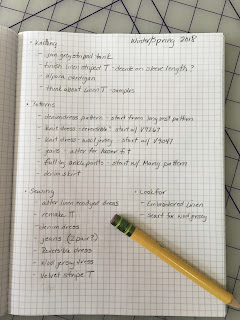 Winter/Spring 2018
• Knitting
- gray striped tank
- finish linen striped T - decide on sleeve length?
- alpaca cardigan
- think about linen T - samples
• Patterns
- denim dress pattern - start from long vest pattern
- knit dress - reversible? start w/
- knit dress - wool jersey - start w/
- jeans - alter for looser fit
- full leg ankle pants - start w/ pattern
- denim skirt
• Sewing
- alter linen hoodyed dress
- remake T
- denim dress
- jeans (2 pair?)
- Reversible dress
- wool jersey dress
- Velvet stripe T
• Look for
- Embroidered linen
- Scarf for wool jersey